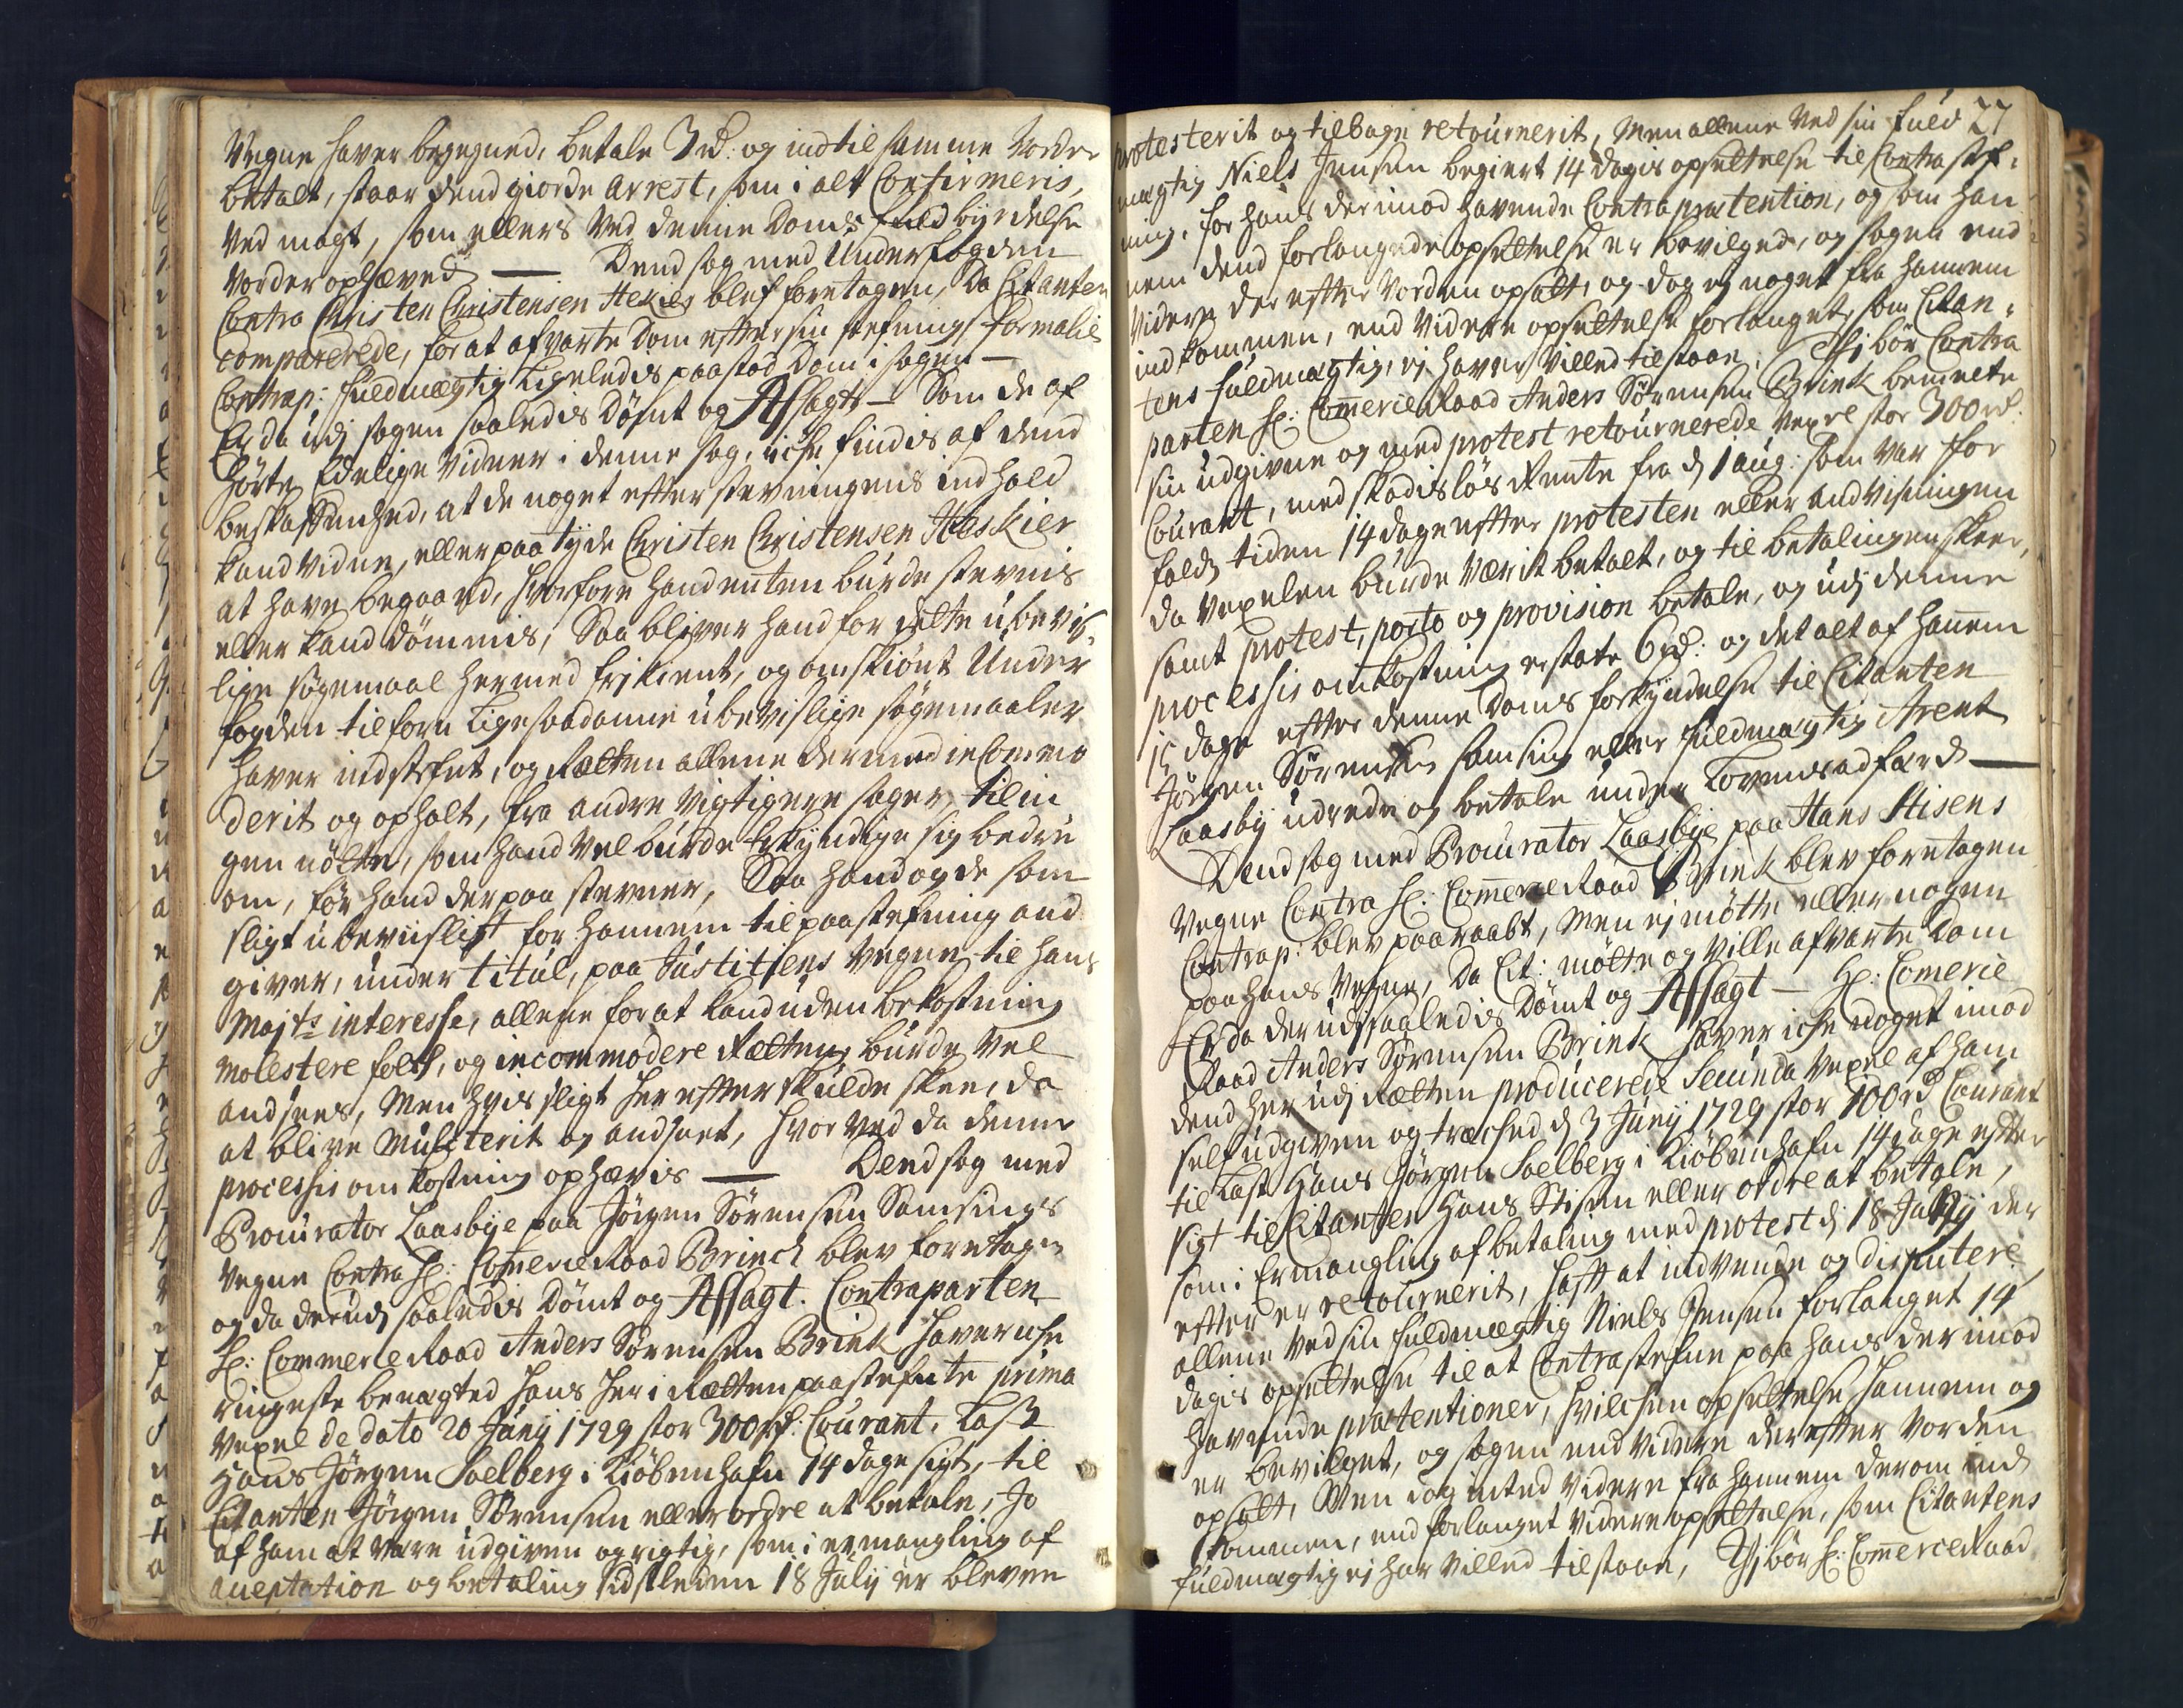 Vegne haver begegned, betale 3 rd: og indtil samme vorder
betalt, staar dend giorde Arrest, som i alt Confirmeris,
ved magt, som ellers ved denne Doms fuldbyrdelse
vorder ophæved — Dend sag med Underfogden
Contra Christen Christensen Hekier blef foretagen, da Citanten
comparerede, for at afvarte Dom efter sin stefnings formalie
Contrap: fuldmægtig ligeledis paastod Dom i sagen —
Er da udj sagen saaledis Dømt og Afsagt — Som de af
hørte Edelige vidner i denne sag, iche findis af dend
beskaffenhed, at de noget efter stevningens indhold
kand vidne, eller paatyde Christen Christensen Heskier
at have begaaed, hvorfore hand enten burde stevnis
eller kand dømmis, Saa bliver hand for dette ubevis-
lige søgemaal hermed frj kient, og omskiønt Under
fogden tilforn ligesaadanne ubevislige søgemaaler
haver indstefnt, og Rætten allene dermed incommo
derit og opholt, fra andre vigtigere sager, til in
gen nøtte, som hand vel burde Erkyndige sig bedre
om, før hand derpaa stevner, Saa hand og de som
sligt ubevislist for hannem til paastefning and
giver, under titul, paa Justitiens vegne til hans
Majts interesse, allene for at kand uden bekostning
molestere folk, og incommodere Rætten, burde vel
andsees, Men hvis sligt her efter skulde skee, da
at blive mulcterit og andseet, hvor ved da denne
processis omkostning ophævis — Dend sag med
Procurator Laasbye paa Jørgen Sørensen Samsings
vegne Contra Hr: CommerceRaad Brinch blev foretagen
og da derudj saaledis Dømt og Afsagt. Contraparten
Hr: CommerceRaad Anders Sørensen Brink haver iche
ringeste benægted hans her i Rætten paastefnte prima
vexel de dato 20 Junij 1729 stor 300 rd: Courant, Last
Hans Jørgen Soelberg i Kiøbenhafn 14 dage sigt, til
Citanten Jørgen Sørensen eller ordre at betale, Jo
af ham at være udgiven og rigtig, som i ermangling af
acceptation og betaling sidstleden 18 Julij er bleven
27
protesterit og tilbage retournerit, Men allene ved sin fuld
mægtig Niels Jensen begiert 14 dagis opsettelse til Contrastef-
ning, for hans derimod havende Contraprætention, og som han
nem dend forlangede opsettelse er bevilged, og sagen end
videre der efter vorden opsatt, og dog ej noget fra hannem
indkommen, end videre opsettelse forlanget, som Citan-
tens fuldmægtig, ej haver villed tilstaae, Thj bør Contra
parten Hr: CommerceRaad Anders Sørensen Brink bemelte
sin udgivne og med protest retournerede vexel stor 300 rd.
Courant, med skadisløs Rente fra d. 1 aug: som var for
falds tiden 14 dage efter protesten eller andvisningen
da vexelen burde værit betalt, og til betalingen skeer,
samt protest, porto og provision betale, og udj denne
processis omkostning erstate 6 rd: og det alt af hannem
15 dage efter denne Doms forkyndelse til Citanten
Jørgen Sørensen Samsing eller fuldmægtig Arent
Laasby udrede og betale under Lovens adfærd —
Dend sag med Procurator Laasbye paa Hans Stisens
Vegne Contra Hr: CommerceRaad Brink blev foretagen
Contrap: blev paaraabt, Men ej møtte eller nogen
paa hans vegne, Da Cit: møtte og ville afvarte Dom
Er da derudj saaledis Dømt og Afsagt — Hr: Comerce
Raad Anders Sørensen Brink haver iche noget imod
dend her udj Rætten producerede Secunda vexel af ham
self udgiven og træched d. 3 Junij 1729 stor 100 rd Courant
til Last Hans Jørgen Soelberg i Kiøbenhafn 14 dage efter
sigt til Citanten Hans Stisen eller ordre at betale,
som i Ermangling af betaling med protest d. 18 Julij der
efter er retournerit, hafft at indvende og disputere,
allene ved sin fuldmægtig Niels Jensen forlanget 14
dagis opsettelse til at Contrastefne paa hans derimod
havende prætentioner, hvilchen opsettelse hannem og
er bevilget, og sagen end videre derefter vorden
opsatt, Men dog inted videre fra hannem derom ind
kommen, end forlanget videre opsettelse, som Citantens
fuldmægtig ej har villed tilstaae, Thj bør Hr: CommerceRaad